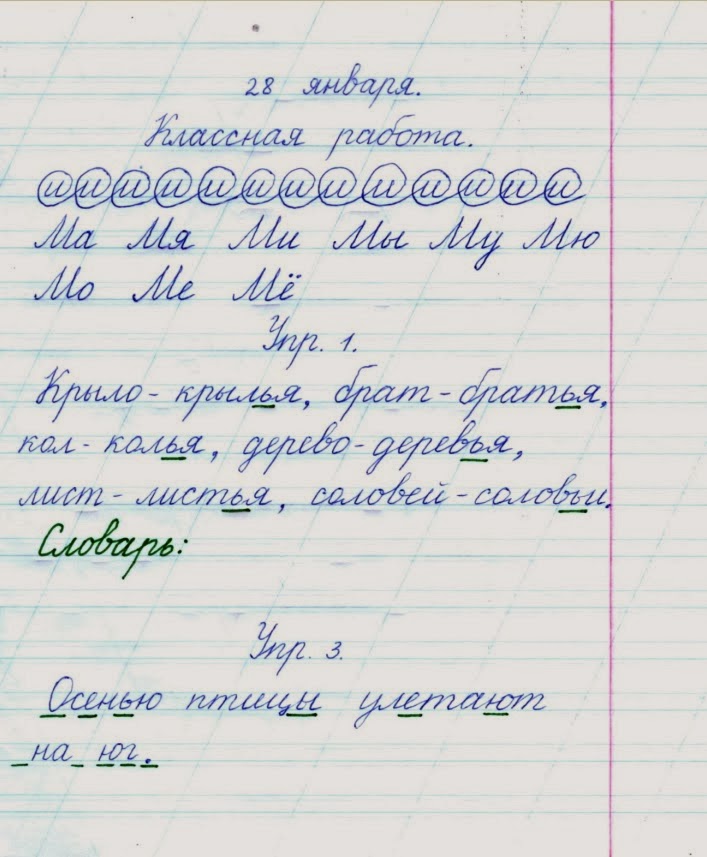 28 января.
Классная работа.
и и и и и и и и и и и и и
Ма Мя Ми Мы Му Мю
Мо Ме Мё
Упр. 1.
Крыло - крылья, брат - братья,
кол - колья, дерево - деревья,
лист - листья, соловей - соловьи.
Словарь:
Упр. 3.
Осенью птицы улетают
на юг.